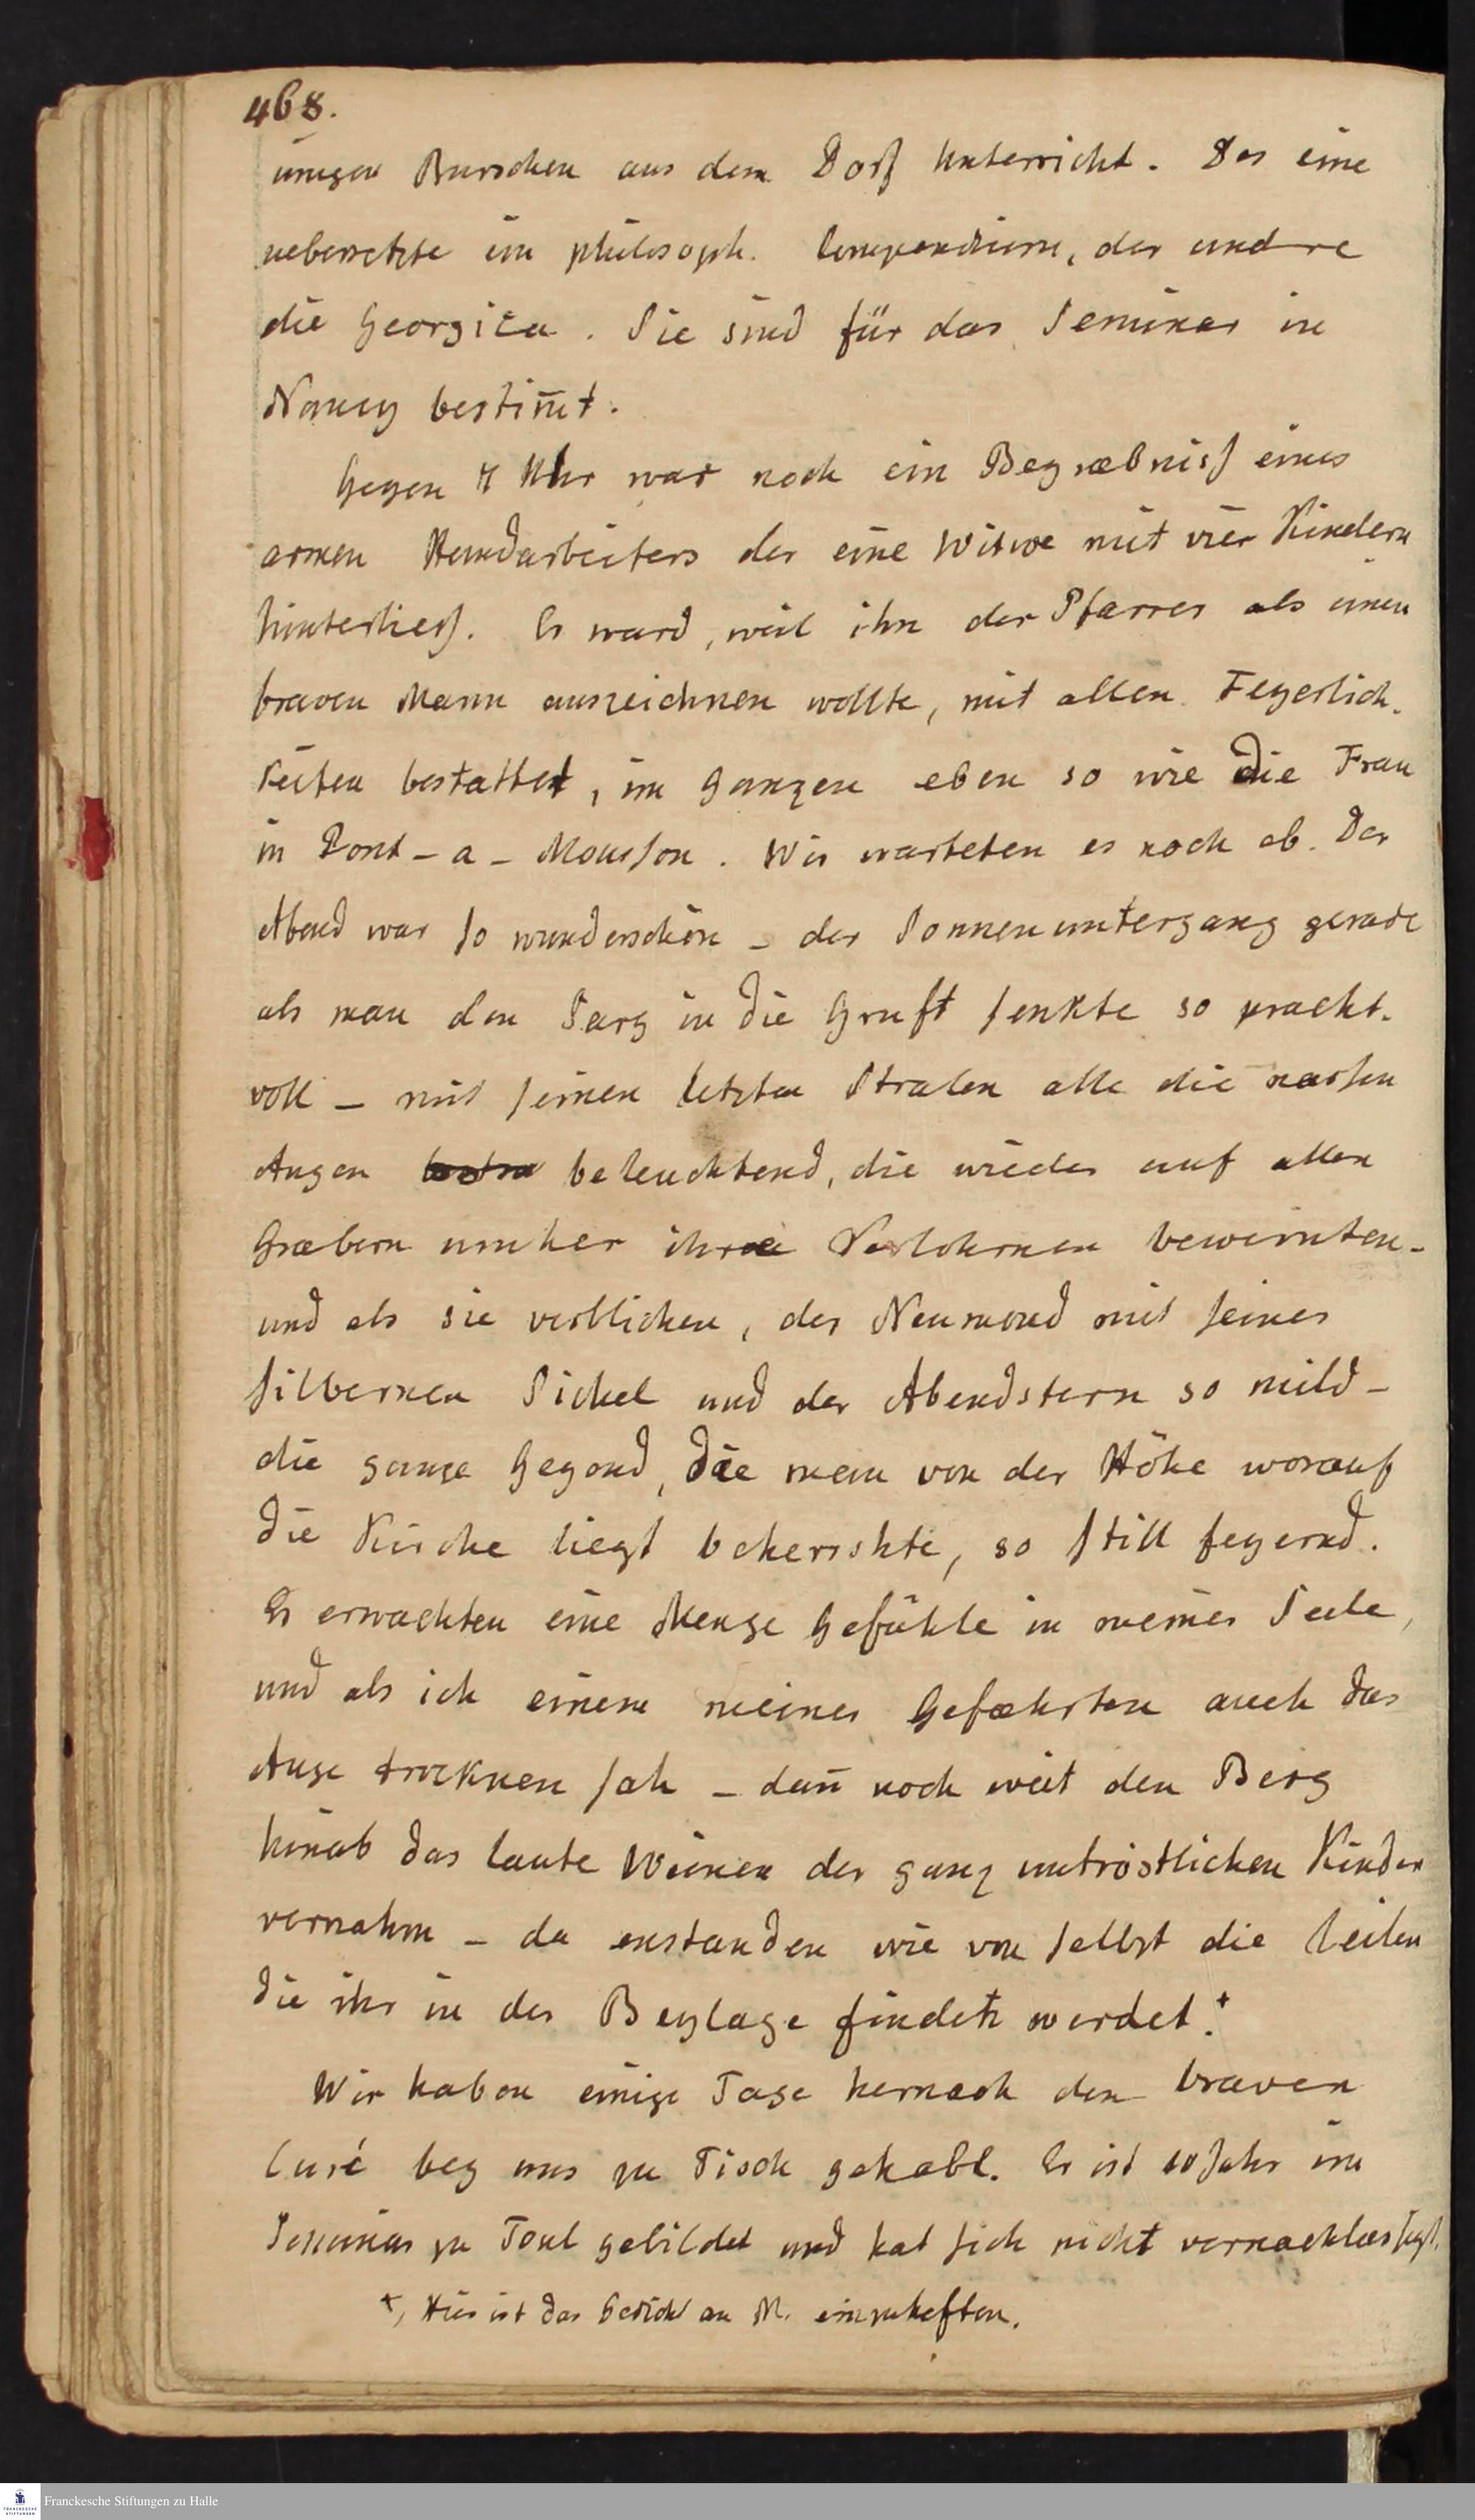 468.
einigen Burschen aus dem Dorf Unterricht. Der eine
uebersetzte ein philosoph. Compendium, der andre
die Georgica. Sie sind für das Seminar in
Nancy bestim̄t.
Gegen 7 Uhr war noch ein Begræbniß eines
armen Handarbeiters der eine Witwe mit vier Kindern
hinterließ. Er ward, weil ihn der Pfarrer als einen
braven Mann auszeichnen wollte, mit allen Feyerlich-
keiten bestattet, im Ganzen eben so wie die Frau
in Pont-a-Mousson. Wir warteten es noch ab. Der
Abend war so wunderschön – der Sonnenuntergang gerade
als man den Sarg in die Gruft senkte so pracht-
voll – mit seinen letzten Stralen alle die nassen
Augen beleuchtend, die wieder auf allen
Græbern umher ihre Verlohrnen beweinten –
und als sie verblichen, der Neumond mit seiner
silbernen Sichel und der Abendstern so mild –
die ganze Gegend, die man von der Höhe worauf
die Kirche liegt beherrschte, so still feyernd.
Es erwachten eine Menge Gefühle in meiner Seele,
und als ich einem meiner Gefæhrten auch das
Auge trocknen sah – dañ noch weit den Berg
hinab das laute Weinen der ganz untröstlichen Kinder
vernahm – da enstanden wie von selbst die Zeilen
die ihr in der Beylage finden werdet.*
Wir haben einige Tage hernach den braven
Curé bey uns zu Tisch gehabt. Er ist 10 Jahr im
Seminar zu Toul gebildet und hat sich nicht vernachlæssigt.
*, Hier ist das Gedicht an M. einzuheften.
Franckesche Stiftungen zu Halle